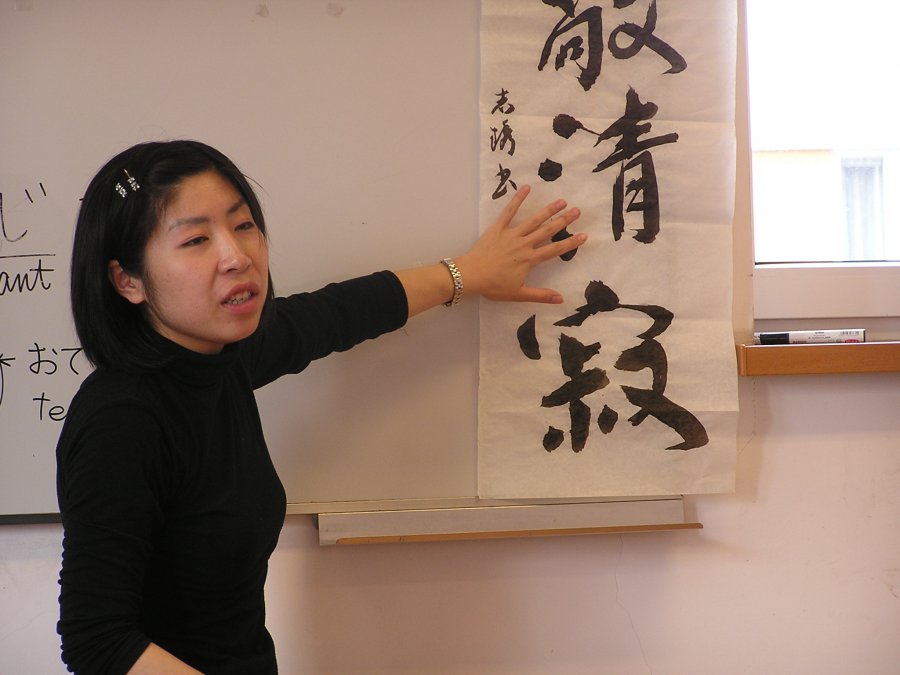 敬清寂
志 书
じ
ant
おて
te